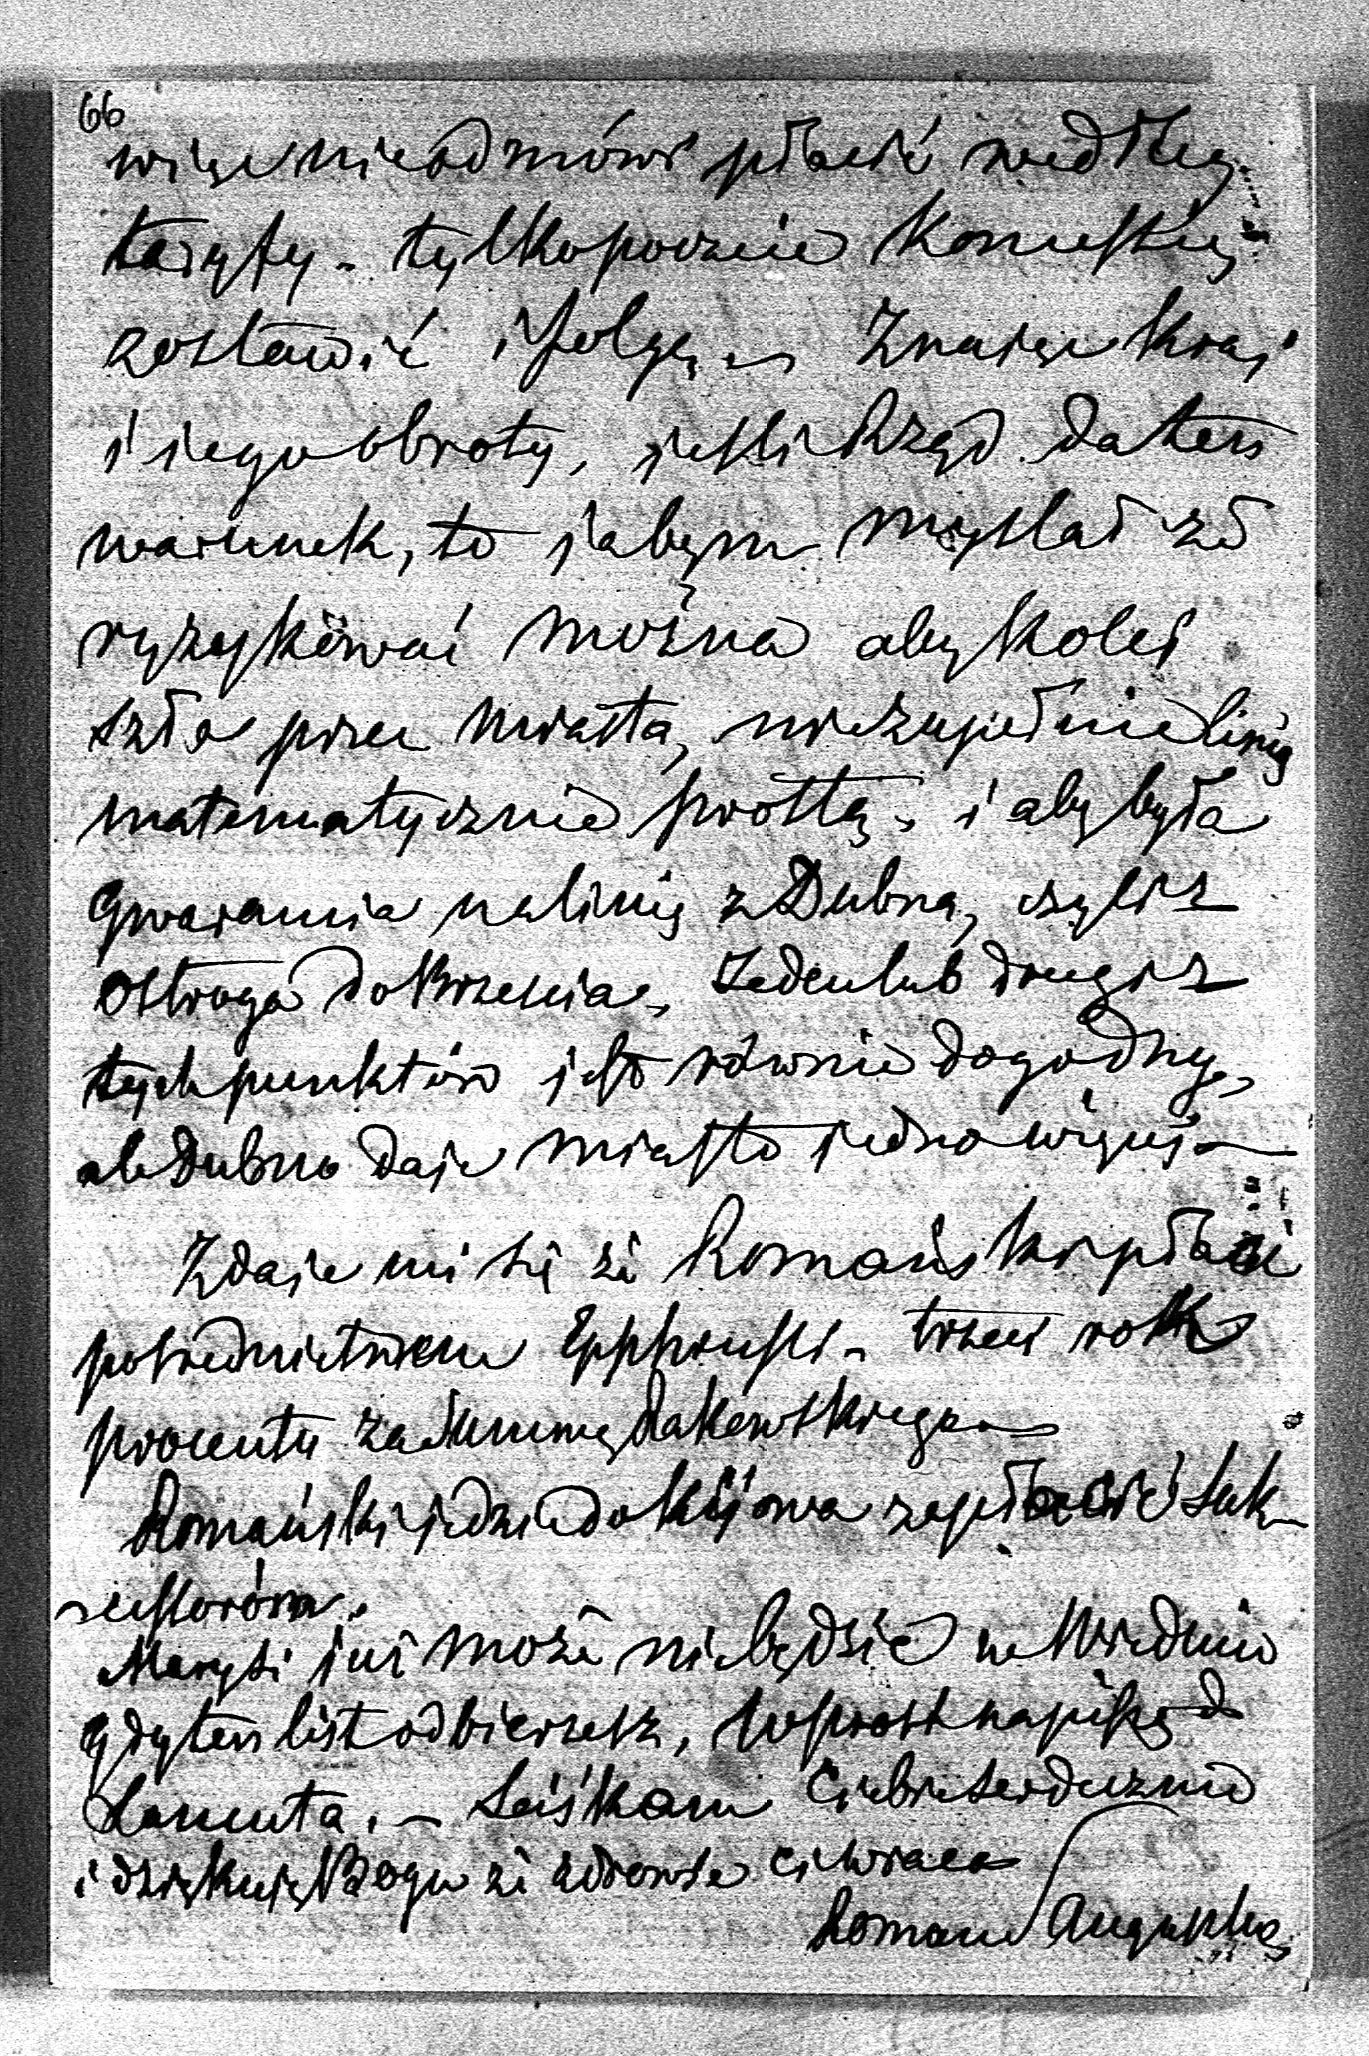 66
więc nie odmówi płacić według
taryfy. tylko pocznie
zostawić i folgę. Znając kraj
i jego obroty, jeśli Rząd da ten
warunek, to jabym myślał że
ryzykować można aby kolej
szła przez miasta, nie zupełnie linią
matematycznie prostą. i aby była
gwarancia na linię z Dubna, czyli z
Ostroga do Brzescia. Jeden lub drugi z
tych punktów jest równie dogodny,
ale Dubno daje miasto jedno więcej
Zdaje mi się że Romański płaci
pośrednictwem Ephrussi. trzeci rok
procentu za summę Rakowskiego
Romański jedzie do Kijowa zapłacić suk-
cessorom.
Marysi już może nie będzie w Wiedniu
gdy ten list odbierzesz, wprost napiszę do
Łancuta. – Ściskam Ciebie serdecznie
i dziękuję Bogu że zdrowie ci wraca
Roman Sanguszko